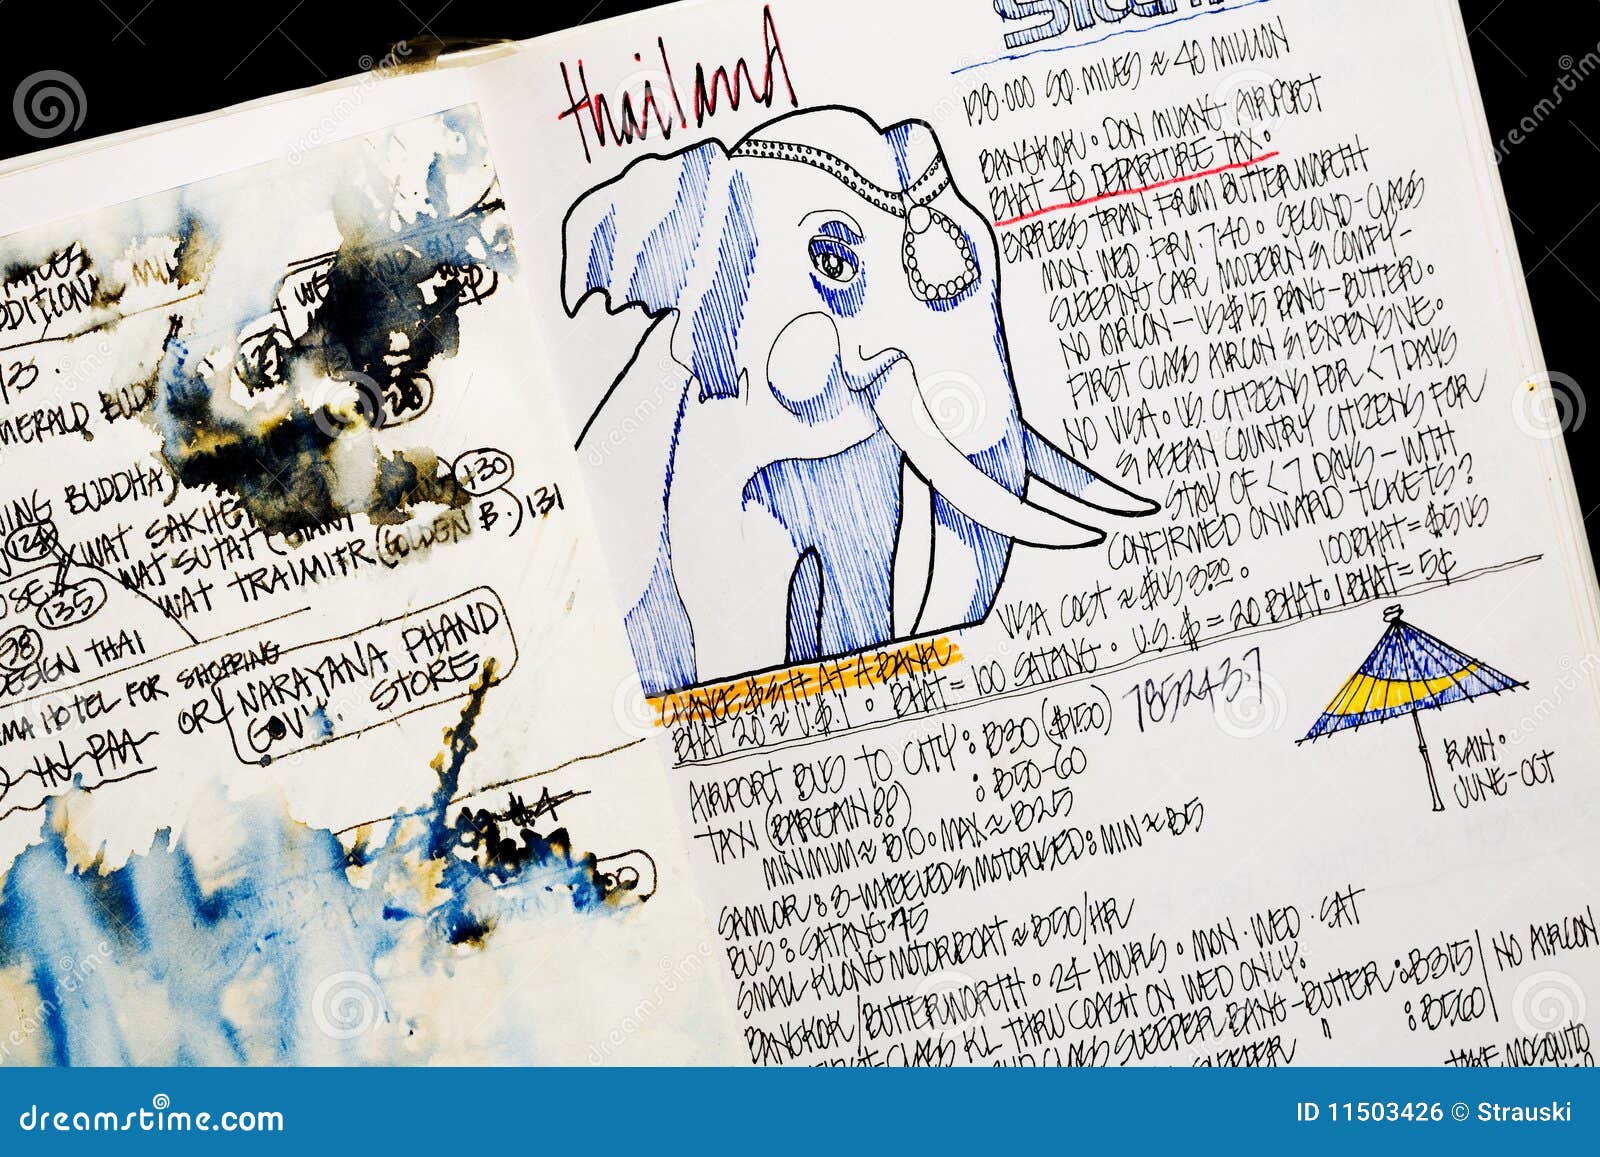 MU
ADDITION
WE
123.
127
EMERALD BUD
28
130
NING BUDDHA
WAT SAKHET
WAT SUTAT (GIANT
WAT TRAIMITR (GOLDEN B.) 131
135
38
DESIGN THAI
MA HOTEL FOR SHOPPING
OR NARAYANA PHAND
GOV'T. STORE
#4
thailand
198.000 SQ. MILES ≈ 40 MILLION
BANGKOK. DON MUANG AIRPORT
BHAT 40 DEPARTURE TAX.
EXPRESS TRAIN FROM BUTTERWORTH
MON. WED. FRI 7:40. SECOND-CLASS
SLEEPING CAR MODERN & COMFY-
NO AIRCON - US$15 BANG-BUTTER.
FIRST CLASS AIRCON & EXPENSIVE.
NO VISA. U.S. CITIZENS FOR <7 DAYS
& ASEAN COUNTRY CITIZENS FOR
STAY OF <7 DAYS - WITH
CONFIRMED ONWARD TICKETS?
VISA COST ≈ $US 3.50. 100 BHAT = $5 US
CHANGE $ AT A BANK
BHAT = 100 SATANG. U.S. $ = 20 BHAT. 1 BHAT = 5¢
BHAT 20 ≈ U.S. $1.
785243.7
AIRPORT BUS TO CITY: B30 ($1.50)
TAXI (BARGAIN!!) : B50-60
MINIMUM ≈ B10. MAX ≈ B25
SAMLOR: 3-WHEELED & MOTORISED: MIN ≈ B5
BUS: SATANG 75
SMALL KLONG MOTORBOAT ≈ B50/HR
BANGKOK/BUTTERWORTH. 24 HOURS. MON. WED. SAT
KL THRU COACH ON WED ONLY.
2ND CLASS SLEEPER BANG-BUTTER: B315 NO AIRCON
SLEEPER " : B560
TAKE MOSQUITO
RAIN.
JUNE-OCT
dreamstime.com
ID 11503426 © Strauski